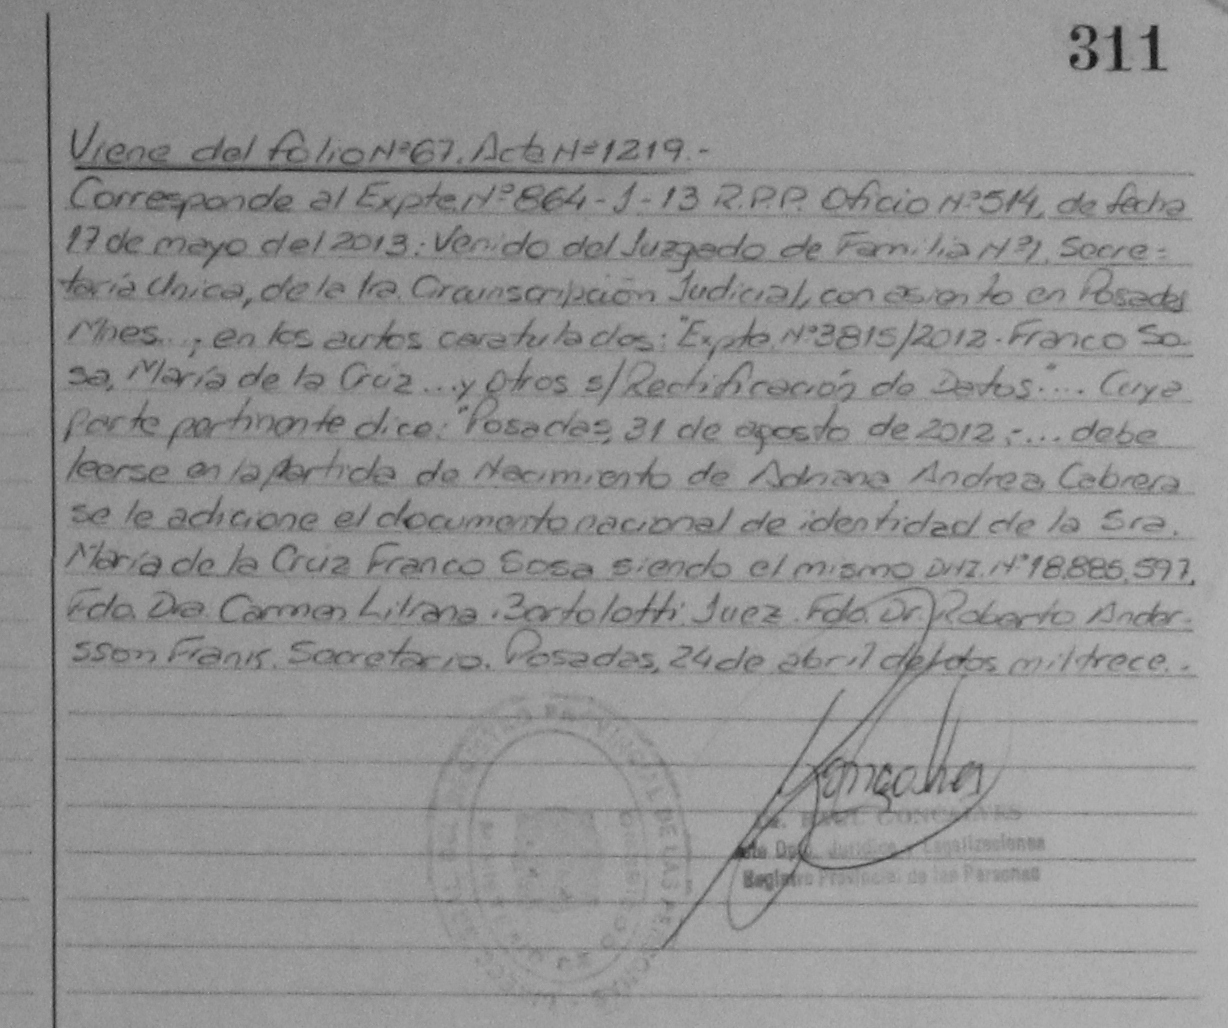 311
Viene del folio Nº 67. Acta Nº 1219.-
Corresponde al Expte. Nº 864-J-13 R.P.P. Oficio Nº 514, de fecha
17 de mayo del 2013. Venido del Juzgado de Familia Nº 1, Secre-
taría Única, de la 1ra. Circunscripción Judicial, con asiento en Posadas
Mnes..; en los autos caratulados: "Expte. Nº 3815/2012. Franco So-
sa, María de la Cruz...y Otros s/Rectificación de Datos".... Cuya
parte pertinente dice: "Posadas, 31 de agosto de 2012.-... debe
leerse en la partida de Nacimiento de Adriana Andrea Cabrera
se le adicione el documento nacional de identidad de la Sra.
María de la Cruz Franco Sosa siendo el mismo DNI. Nº 18.886.597.
Fdo. Dra. Carmen Liliana Bortolotti. Juez. Fdo. Dr. Roberto Ander-
sson Franis. Secretario. Posadas, 24 de abril del dos mil trece..
REGISTRO PROVINCIAL DE LAS PERSONAS
GONCALVES
Dpto. Jurídico y Legalizaciones
Registro Provincial de las Personas